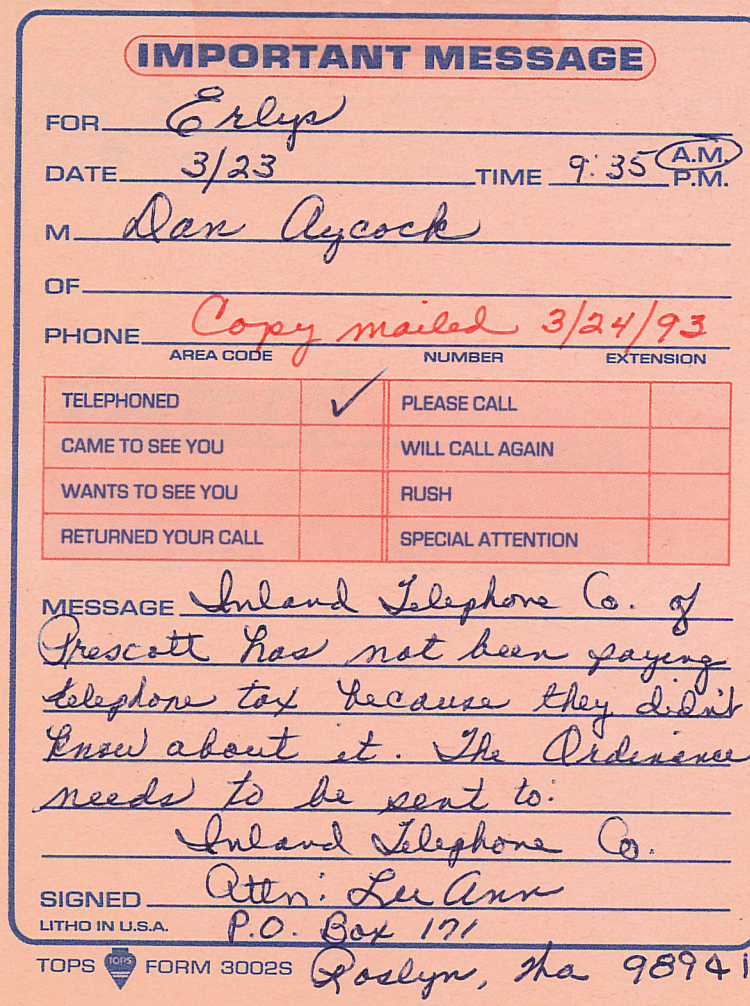 IMPORTANT MESSAGE
FOR Erlys
DATE 3/23 TIME 9:35 A.M.
P.M.
M Dan Aycock
OF
PHONE Copy mailed 3/24/93
AREA CODE NUMBER EXTENSION
TELEPHONED ✓ PLEASE CALL
CAME TO SEE YOU WILL CALL AGAIN
WANTS TO SEE YOU RUSH
RETURNED YOUR CALL SPECIAL ATTENTION
MESSAGE Inland Telephone Co. of
Prescott has not been paying
telephone tax because they didn't
know about it. The Ordinance
needs to be sent to:
Inland Telephone Co.
SIGNED Attn: Lee Ann
LITHO IN U.S.A. P.O. Box 171
TOPS TOPS FORM 3002S Roslyn, Wa 98941